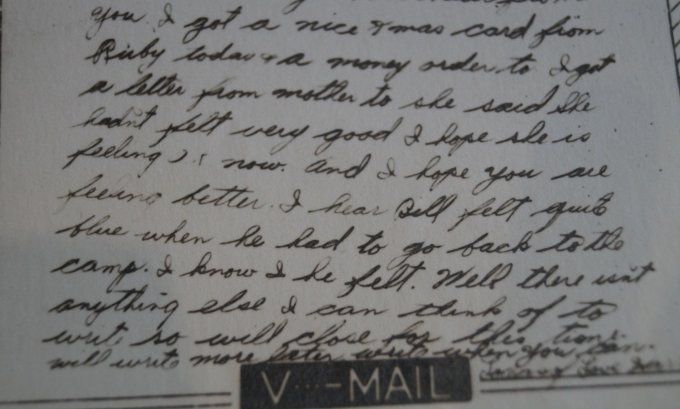 you. I got a nice Xmas card from
Ruby today & a money order to. I got
a letter from mother to she said she
hadnt felt very good I hope she is
feeling now. and I hope you are
feeling better. I hear Bill felt quite
blue when he had to go back to the
camp. I know I he felt. Well there isnt
anything else I can think of to
write so will close for this time.
will write more later write when you can.
of love
V···-MAIL